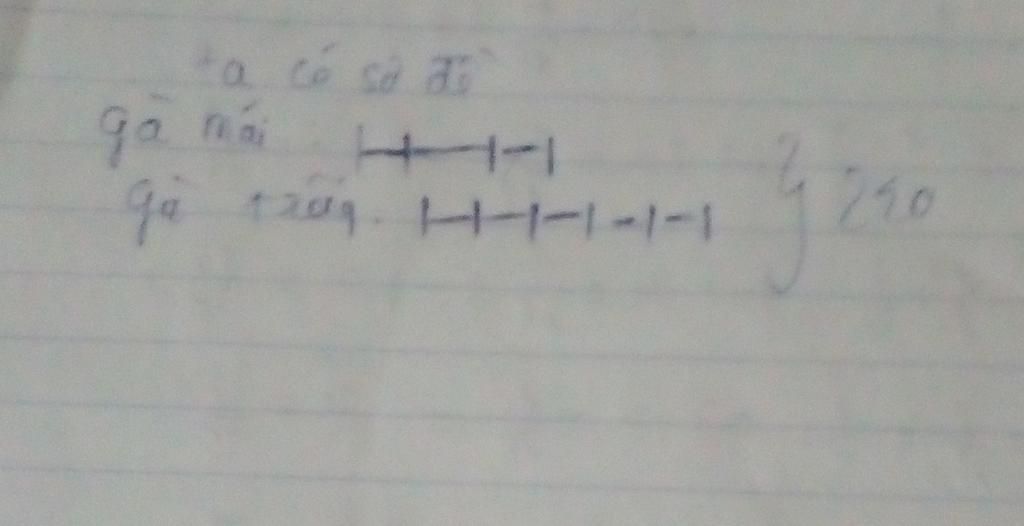 ta có sơ đồ
gà mái
gà trống